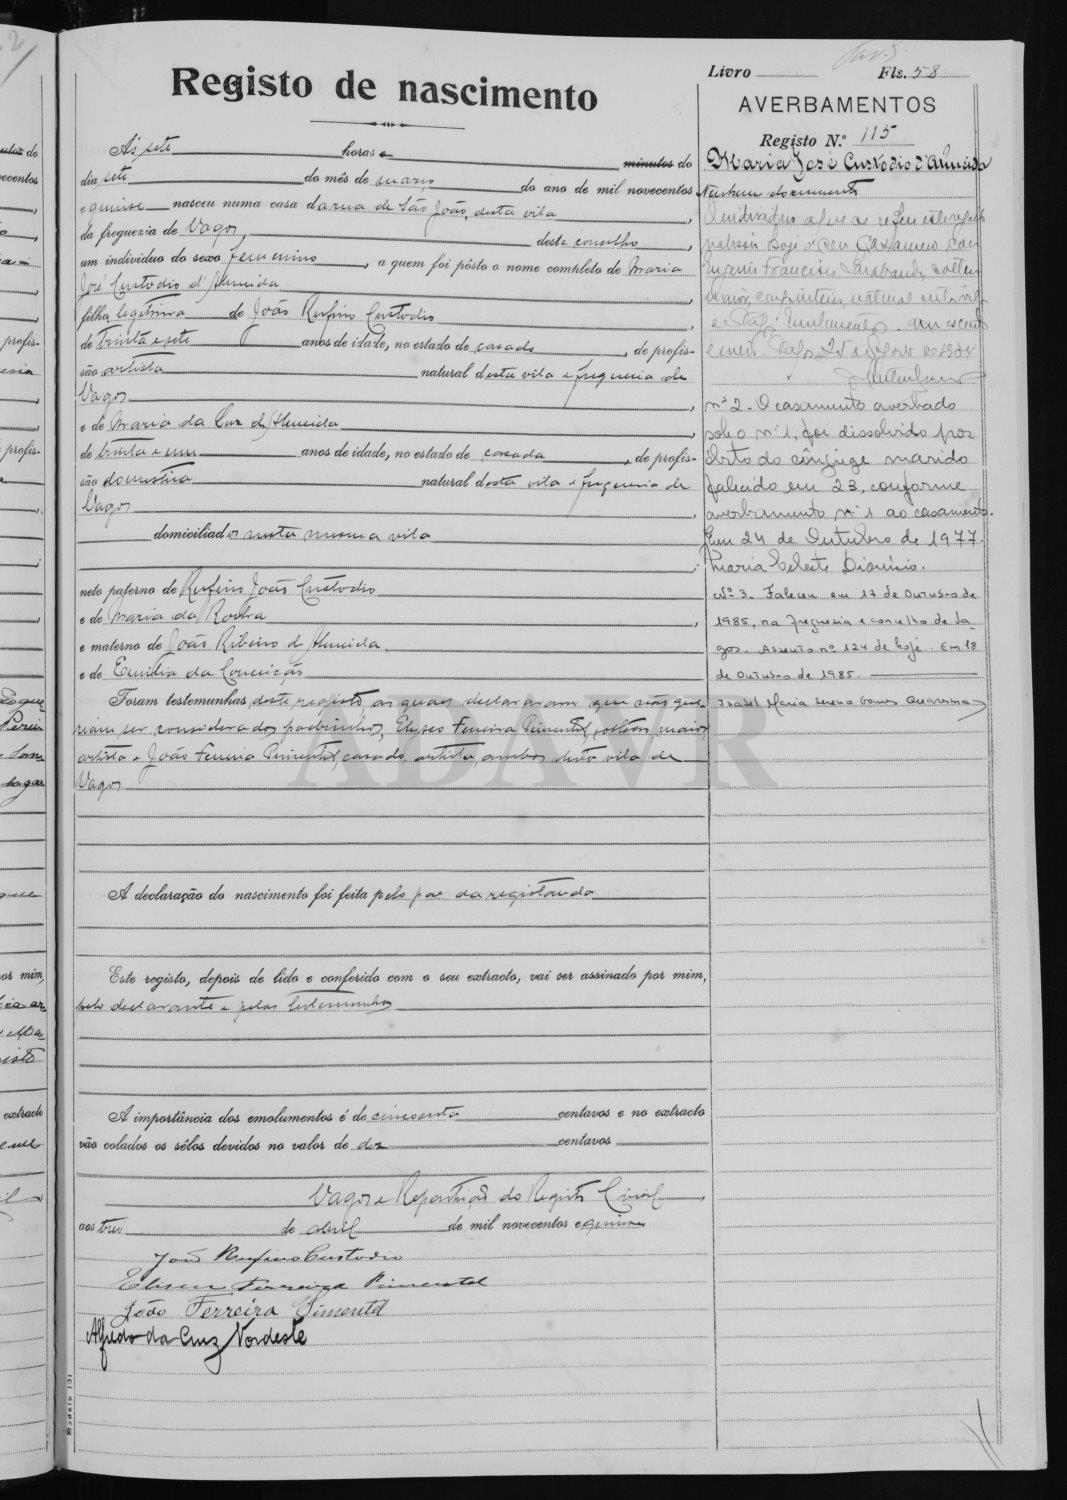 Registo de nascimento
Ás sete horas e minutos do
dia sete do mês de março do ano de mil novecentos
e quinze nasceu numa casa da rua de São João, desta vila
da freguezia de Vagos, deste concelho,
um individuo do sexo femenino, a quem foi pôsto o nome completo de Maria
José Custodio d'Almeida,
filha legitima de João Rufino Custodio,
de trinta e sete anos de idade, no estado de casado, de profis-
são artista natural desta vila e freguesia de
Vagos,
e de Maria da Luz d'Almeida,
de trinta e um anos de idade, no estado de casada, de profis-
são domestica natural desta vila e freguesia de
Vagos,
domiciliados nesta mesma vila
neto paterno de Rufino João Custodio
e de Maria da Rocha,
e materno de João Ribeiro d'Almeida
e de Emilia da Conceição
Foram testemunhas deste registo, as quaes declararam que não que-
riam ser considerados padrinhos, Elyseo Ferreira Pimentel, solteiro, maior
artista e João Ferreira Pimentel, casado, artista, ambos desta vila de
Vagos
A declaração do nascimento foi feita pelo pae da registanda
Este registo, depois de lido e conferido com o seu extracto, vai ser assinado por mim,
pelo declarante e pelas testemunhas
A importância dos emolumentos é de cincoenta centavos e no extracto
vão colados os sêlos devidos no valor de dez centavos
Vagos e Repartição do Registo Civil,
aos tres de abril de mil novecentos e quinze
João Rufino Custodio
Eliseu Ferreira Pimentel
João Ferreira Pimentel
Alfredo da Cruz Nordeste
Modelo 131
Livro Fls. 58
AVERBAMENTOS
Registo N.º 115
Maria José Custodio d'Almeida
Nenhum documento
O individuo a que se refere este
hoje o seu casamento com
Francisco
carpinteiro, natural
de
nº 2. O casamento averbado
sob o nº 1, foi dissolvido por
óbito do cônjuge marido
falecido em 23, conforme
averbamento nº 1 ao casamento.
Em 24 de Outubro de 1977.
Maria Celeste Dionísio.
Nº 3. Faleceu em 17 de Outubro de
1985, na freguesia e concelho de Va-
gos. Assento nº 124 de hoje. Em 18
de Outubro de 1985.
Isabel Maria
ADAVR